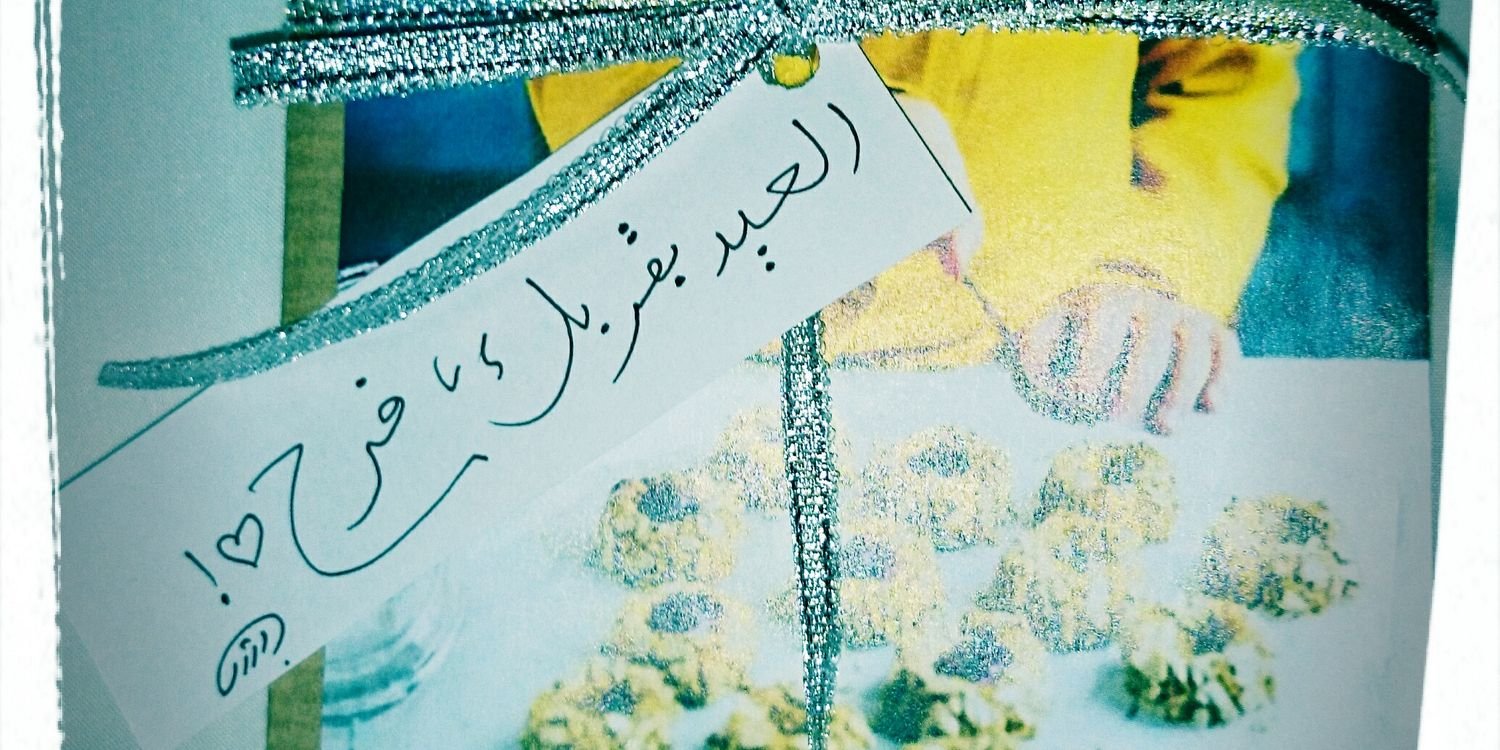 العيد بقربك فرح ♡!